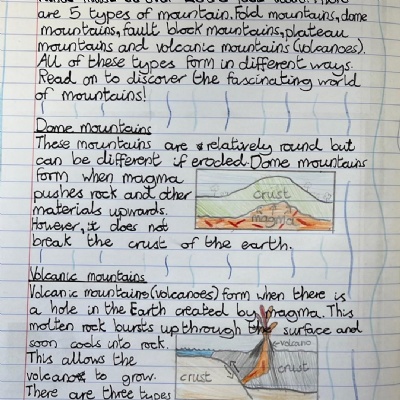 are 5 types of mountain. Fold mountains, dome
mountains, fault block mountains, plateau
mountains and volcanic mountains (volcanoes).
All of these types form in different ways.
Read on to discover the fascinating world
of mountains!
Dome mountains
These mountains are relatively round but
can be different if eroded. Dome mountains
form when magma
pushes rock and other
materials upwards.
However, it does not
break the crust of the earth.
crust
magma
Volcanic mountains
Volcanic mountains (volcanoes) form when there is
a hole in the Earth created by magma. This
molten rock bursts up through the surface and
soon cools into rock.
This allows the
volcano to grow.
There are three types
volcano
crust
crust